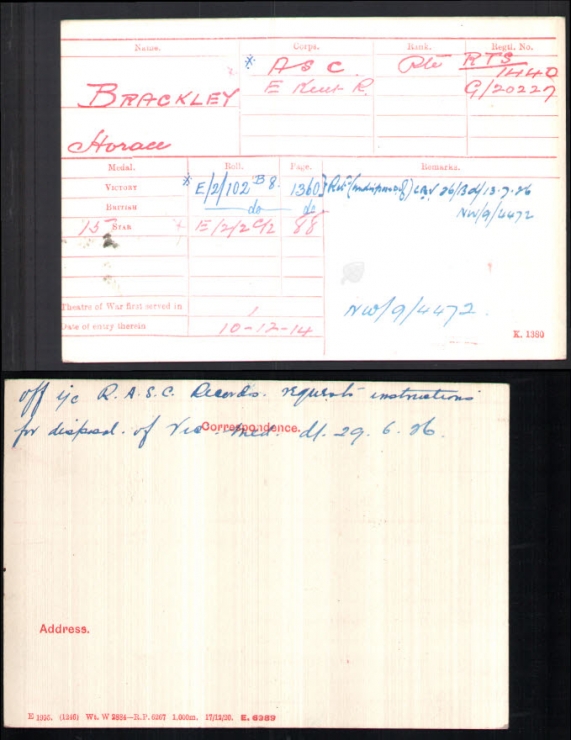 Name. Corps. Rank. Regtl. No.
* A S C. Pte RTS/1440
BRACKLEY E Kent R. G/20227
Horace
Medal. Roll. Page. Remarks.
VICTORY * E/2/102 B 8. 1360 CRV 26/Bd/13.7.26
BRITISH do do NW/9/4472
15 STAR E/2/2 88
NW/9/4472.
Theatre of War first served in 1
Date of entry therein 10-12-14 K. 1380
off i/c R.A.S.C. Records. requests instructions
for disposal. of Vic. Med. d/. 29. 6. 26.
Correspondence.
Address.
E 1095. (1340) Wt. W 5884—R.P. 6367 1,000m. 17/12/20. E. 6389